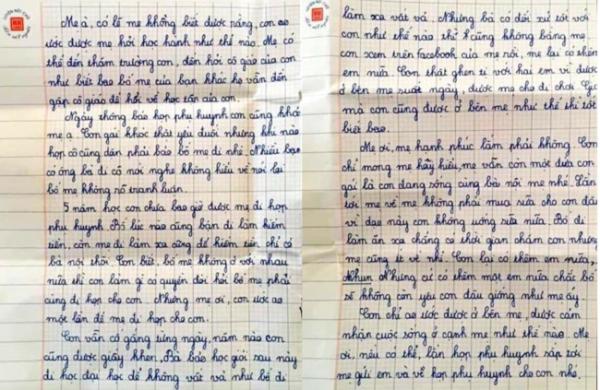 Mẹ à, có lẽ mẹ không biết được rằng, con ao
ước được mẹ hỏi học hành như thế nào. Mẹ có
thể đến thăm trường con, đến hỏi cô giáo của con
như biết bao bố mẹ của bạn khác họ vẫn đến
gặp cô giáo để hỏi về học tập của con.
Ngày thông báo họp phụ huynh con cũng khóc
mẹ ạ. Con gái khóc thật yếu đuối nhưng khi nào
họp cô cũng dặn phải bảo bố mẹ đi nhé. Nhiều bạn
có ông bà đi cô nói nghe không hiểu về nói lại
bố mẹ không rõ tranh luận.
5 năm học con chưa bao giờ được mẹ đi họp
phụ huynh. Bố lúc nào cũng bận đi làm kiếm
tiền, còn mẹ đi làm xa cũng để kiếm tiền chỉ có
bà nội thôi. Con biết, bố mẹ không ở với nhau
nữa thì con làm gì có quyền đòi hỏi bố mẹ phải
cùng đi họp cho con. Nhưng mẹ ơi, con ước ao
một lần để mẹ đi họp cho con.
Con vẫn cố gắng từng ngày, năm nào con
cũng được giấy khen. Bà bảo học giỏi sau này
đi học đại học để không vất vả như bố đi
làm xa vất vả. Nhưng bà có đối xử tốt với
con như thế nào thì cũng không bằng mẹ.
con xem trên facebook của mẹ nói, mẹ lại có thêm
em nữa. Con thật ghen tị với hai em vì được
ở bên mẹ suốt ngày, được mẹ cho đi chơi. Giá
mà con cũng được ở bên mẹ như thế thì tốt
biết bao.
Mẹ ơi, mẹ hạnh phúc lắm phải không. Con
chỉ mong mẹ hãy hiểu, mẹ vẫn còn một đứa con
gái là con đang sống cùng bà nội mẹ nhé. Lần
tới mẹ về mẹ không phải mua sữa cho con đâu
vì dạo này con không uống sữa nữa. Bố đi
làm ăn xa chẳng có thời gian chăm con nhưng
mẹ cũng ít về nhỉ. Con lại có thêm em nữa,
Nhưng cứ có thêm một em nữa chắc bố
sẽ không còn yêu con đâu giống như mẹ ấy.
Con chỉ ao ước được ở bên mẹ, được cảm
nhận cuộc sống ở cạnh mẹ như thế nào. Mẹ
ơi, nếu có thể, lần họp phụ huynh sắp tới
mẹ gửi em và về họp phụ huynh cho con nhé.